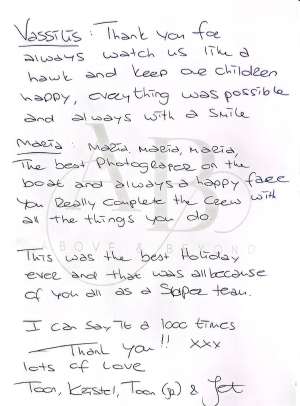 Vassilis : Thank you for
always watch us like a
hawk and keep our children
happy, everything was possible
and always with a smile
Maria : Maria, Maria, Maria,
The best Photograper on the
boat and always a happy face
You Really complete the crew with
all the things you do.
ABOVE & BEYOND
This was the best Holiday
ever and that was all because
of you all as a Super team.
I can say it a 1000 times
Thank you!! xxx
lots of love
Toon, Kristel, Toon (jr) & Jet